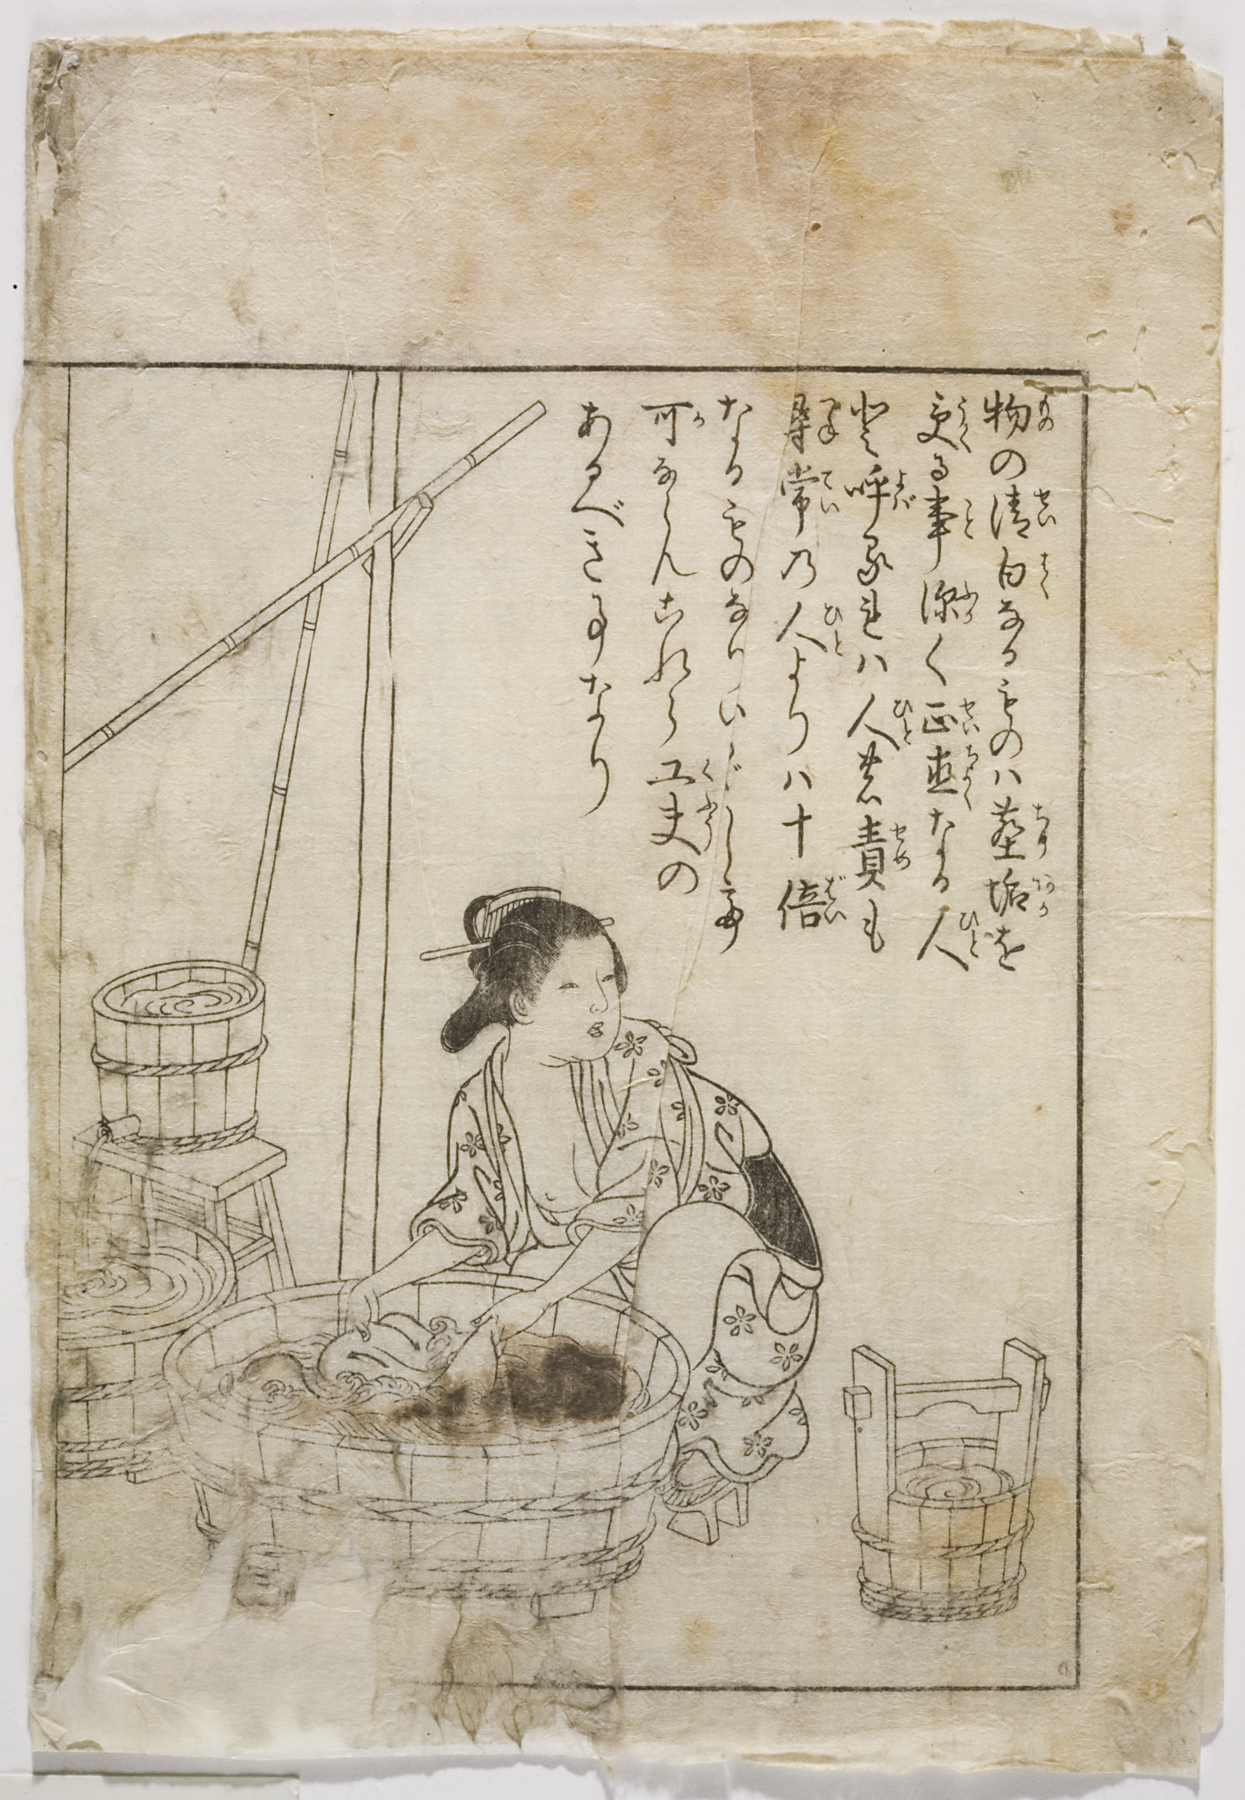 物の清白なるものハ塵垢を
受る事深く正直なる人
と呼るれハ人の責も
尋常の人よりハ十倍
なるものなりいかゞして
可ならんこれら工夫の
あるべき事なり